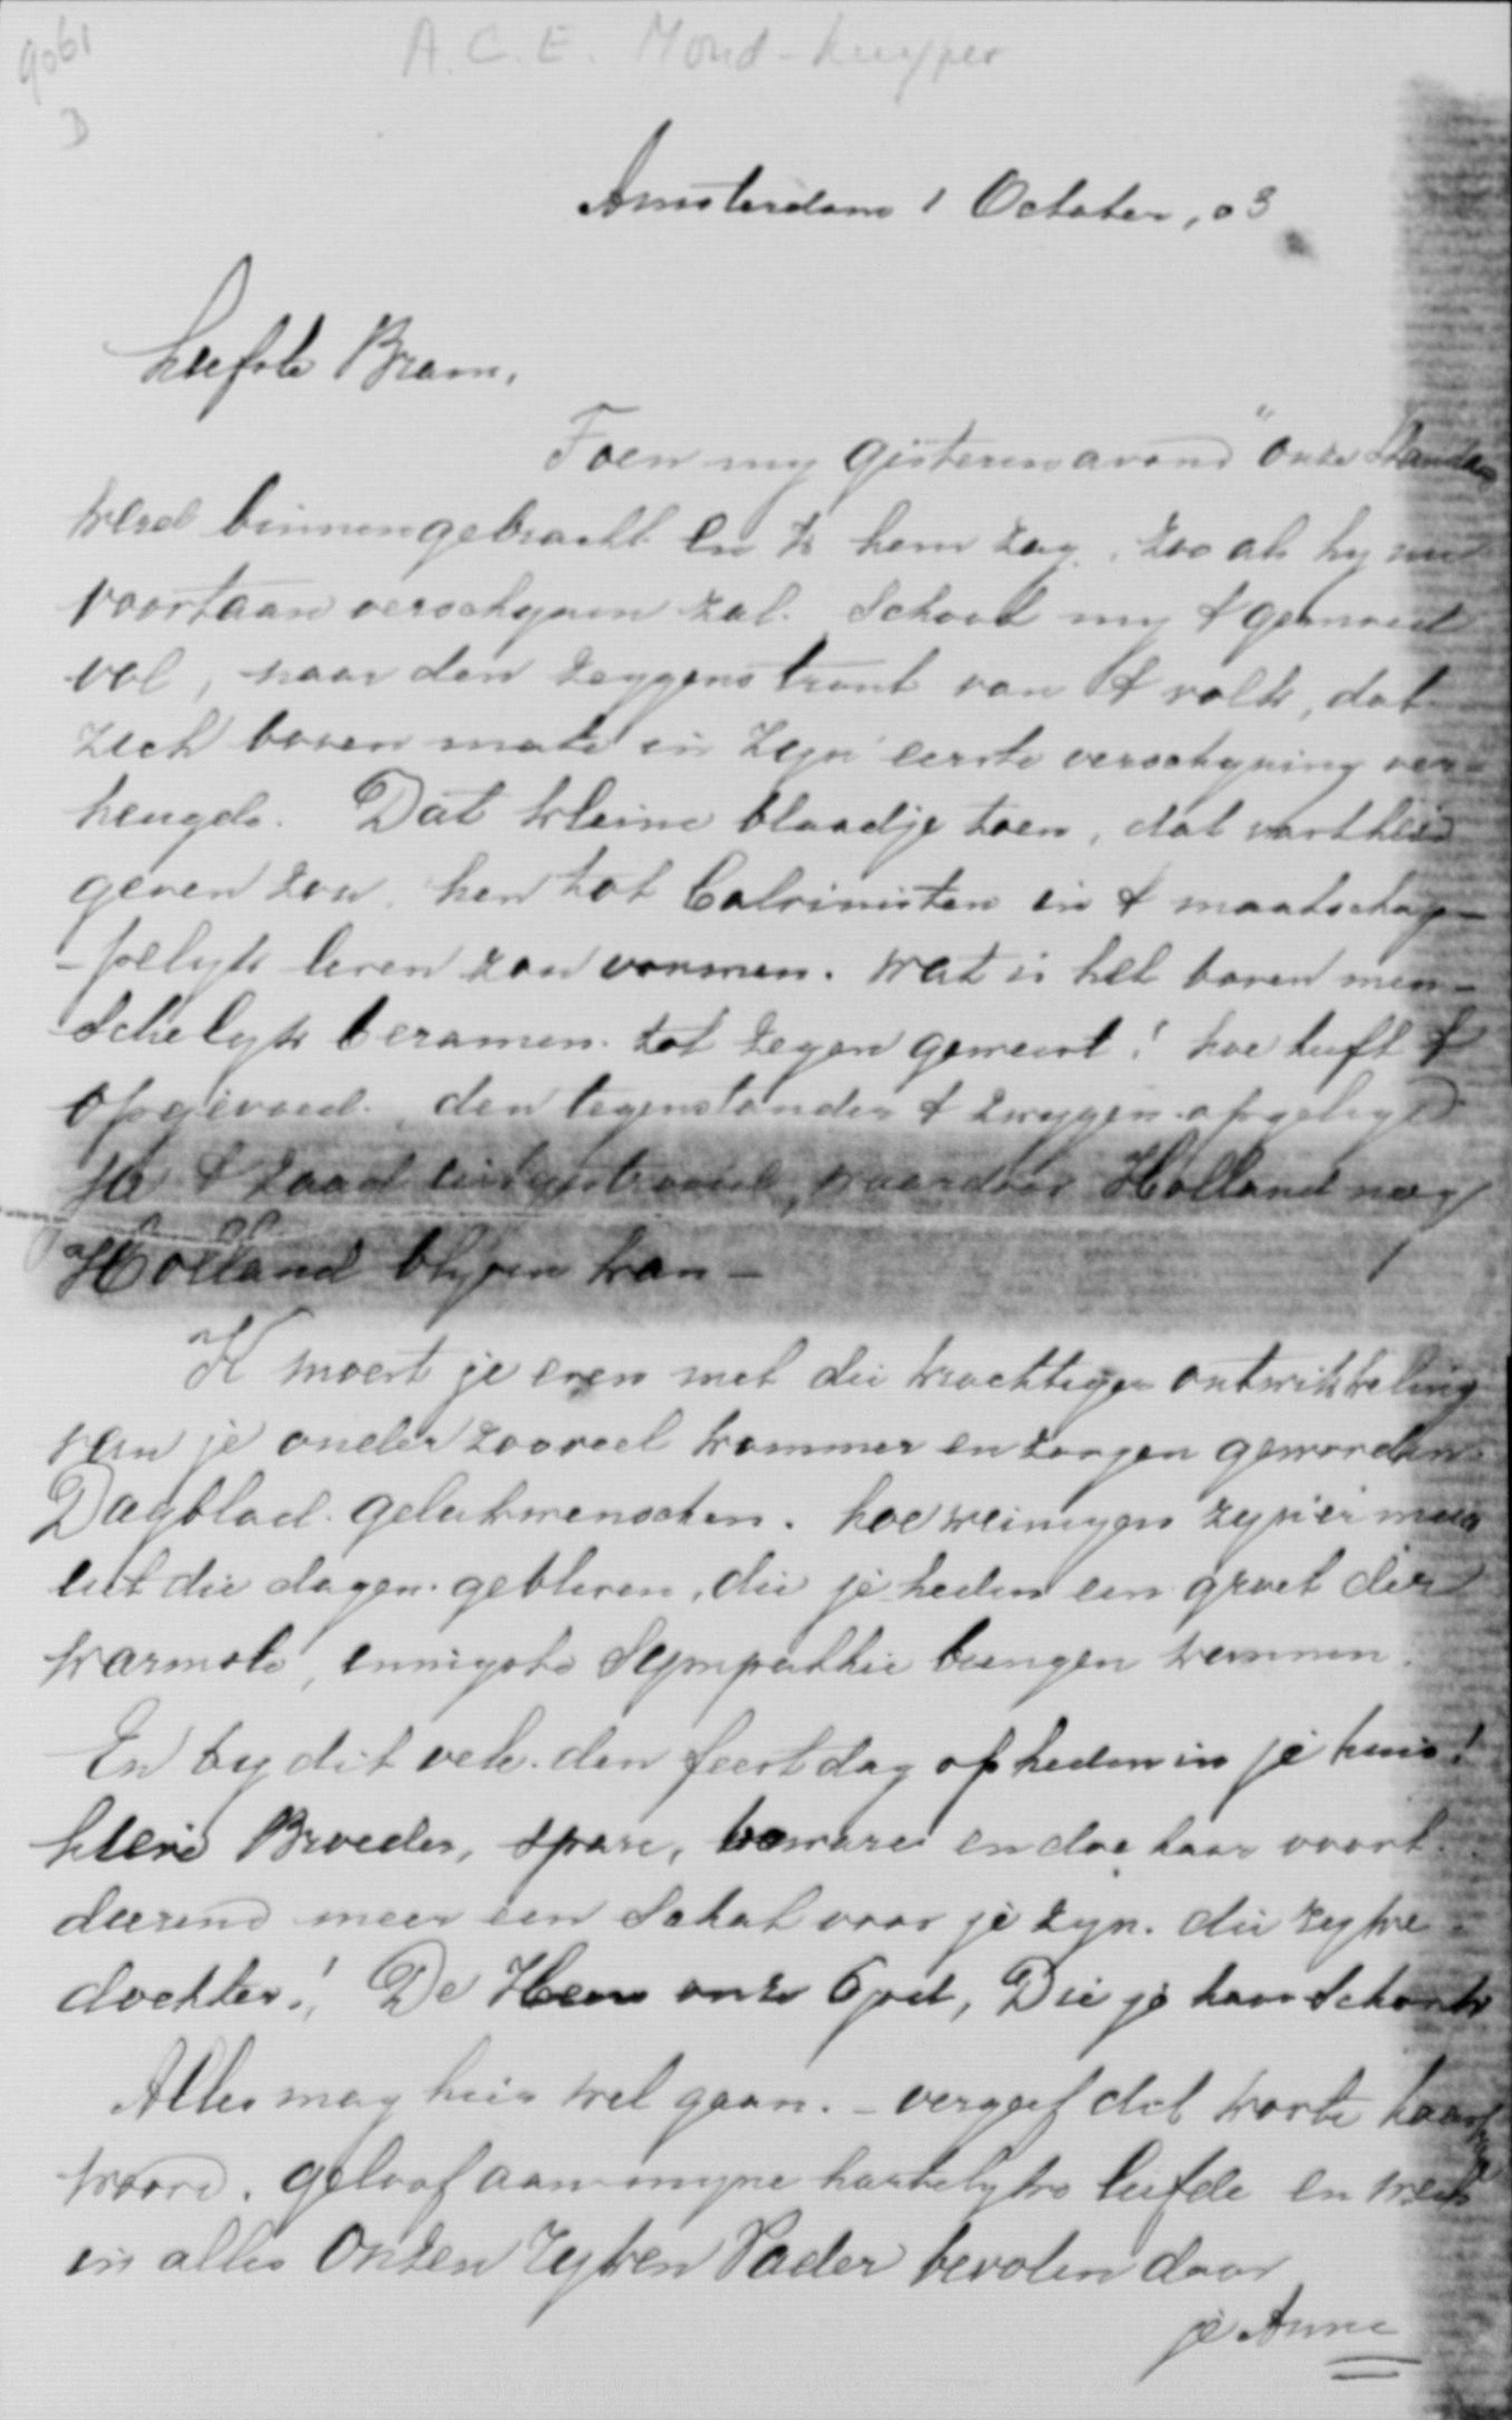 9061
D
A.C.E. Mond-Kuyper
Amsterdam 1 October, 03
Liefste Bram,
Toen my gisterenavond "Onze Standaard
werd binnengebracht en 'k hem zag, zoo als hy nu
voortaan verschynen zal, schoot my 't gemoed
vol, naar den zeggenstrant van 't volk, dat
zich boven mate in zyn eerste verschyning ver-
heugde. Dat kleine blaadje toen, dat
geven zou, hen tot Calvinisten in 't maatschap-
-pelyk leven zou vormen. wat is het boven men-
schelyk beramen tot zegen geweest! hoe heeft 't
opgevoed, den tegenstander 't zwygen opgelegd
ja 't zaad uitgestrooid, waardoor Holland nog
Holland blyven kan -
'K moest je even met die krachtige ontwikkeling
van je onder zooveel kommer en zorgen geworden
Dagblad gelukwenschen. hoe weinigen zyn er maar
uit die dagen gebleven, die je heden een groet der
warmste, innigste Sympathie brengen kunnen.
En by dit vele den feestdag op heden in je huis!
Lieve Broeder, spare, beware en doe haar voort
durend meer een Schat voor je zyn, die ryke
dochter! De Heere onze God, Die je haar Schonk
Alles mag hier wel gaan. - vergeef dit korte
woord, geloof aan myne hartelyke liefde en wees
in alles Onzen Ryken Vader bevolen door
je Anna